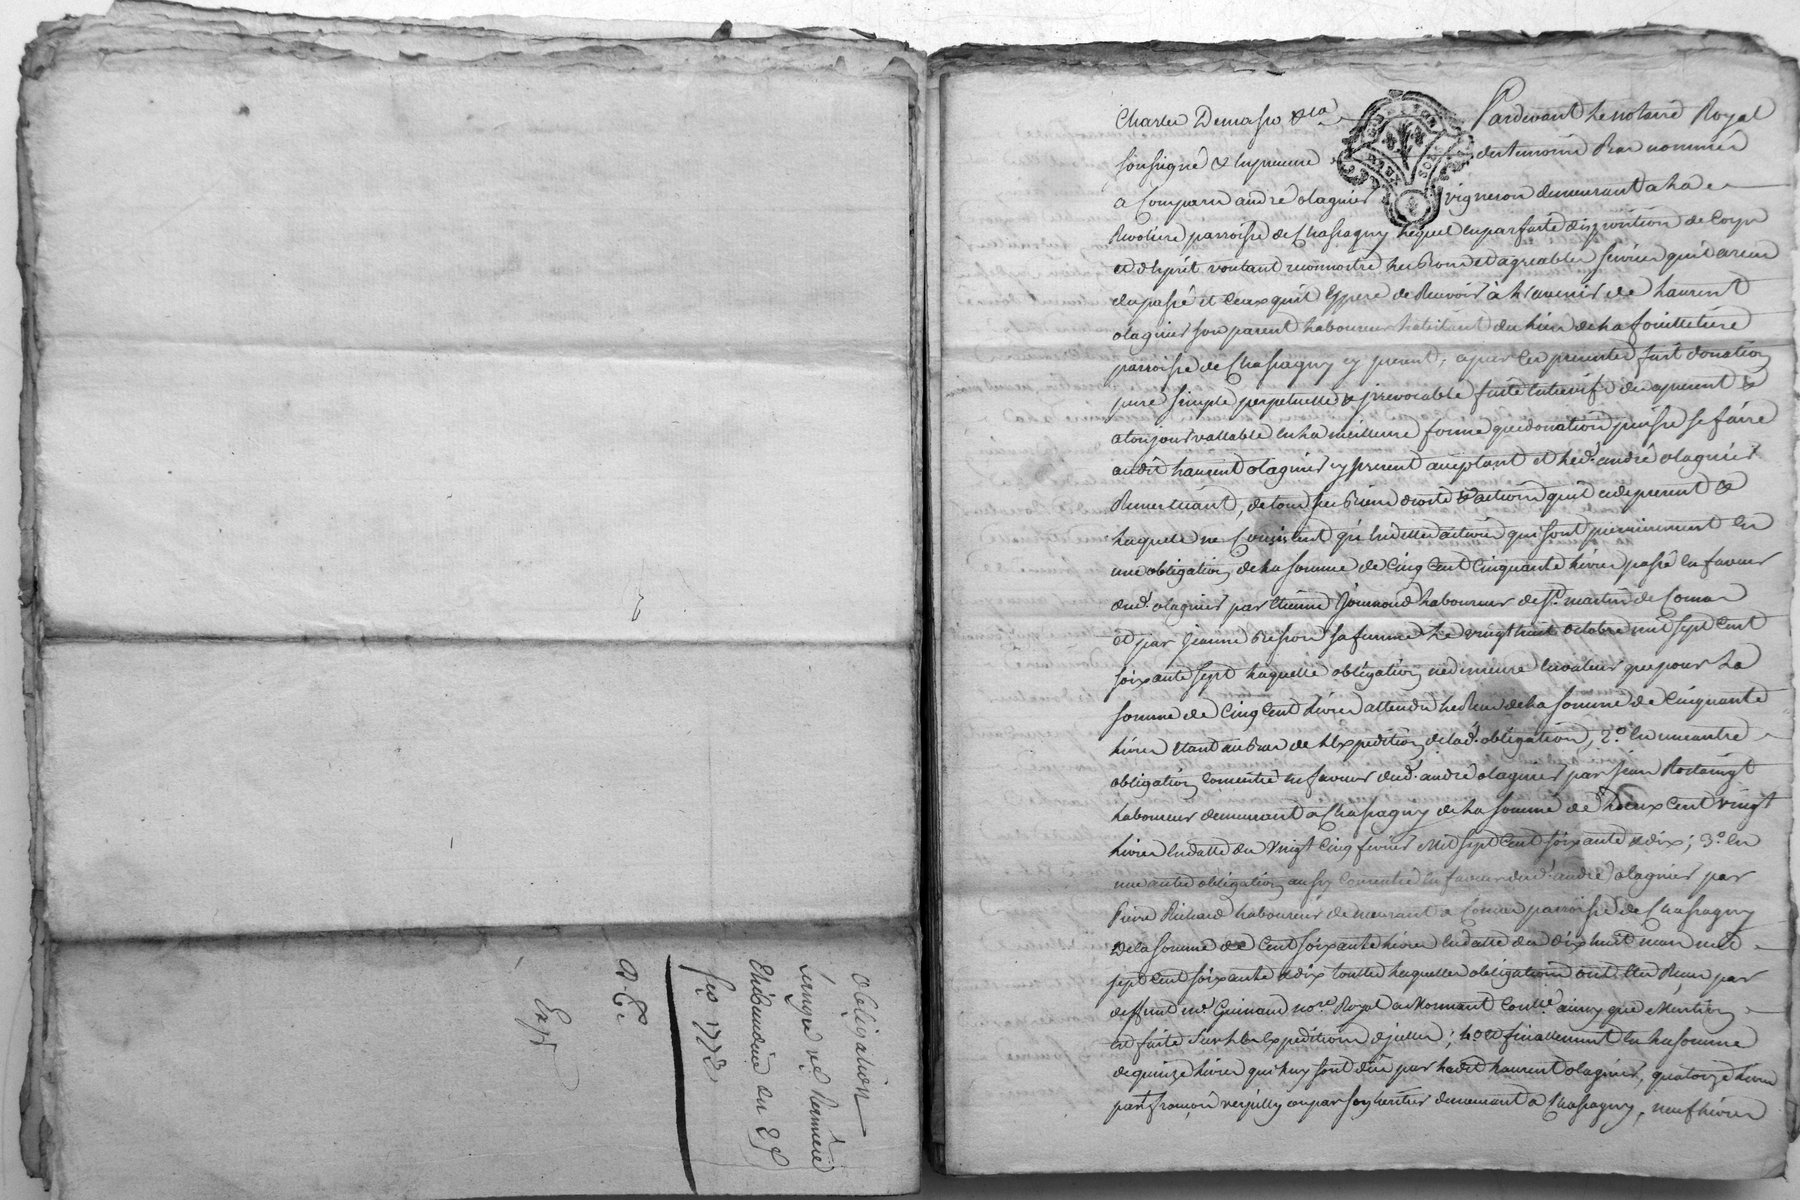 Obligation
Thibaudier du 28
fev 1773
Exp.
Pardevant Le notaire Royal
soussigné & en presence des temoins Bas nommés
a Comparu andré olagnier vigneron demeurant a La
Rivoliere parroisse de Chassagny Lequel en parfaite disposition de Corps
et d'esprit voulant reconnoitre Les Bons et agreables services qu'il a reçu
du passé et Ceux qu'il Espere de Recevoir à L'avenir de Laurent
olagnier son parent Laboureur habitant du Lieu de La fouilletiere
parroisse de Chassagny cy present, a par Ces presentes fait donation
pure simple perpetuelle & jrrevocable faite Entrevifs dez apresent &
atoujours vallable En La meilleure forme que donation puisse se faire
audit Laurent olagnier cy present aceptant et Led. andré olagnier
Remerciant, de tous ses Biens droits & actions qu'il a de present &
Laquelle ne Consistent qu'en dettes actives qui sont premierement En
une obligation de La somme de Cinq Cent Cinquante Livres passé En faveur
dud. olagnier par Etienne Laboureur de St. martin de Cornas
et par Jeanne Besson sa femme Le vingt huit octobre mil sept Cent
soixante sept Laquelle obligation ne demeure En valeur que pour La
somme de Cinq Cent Livres attendu Le Reçu de La somme de Cinquante
Livres Etant au Bas de L'Expedition de lad. obligation, 2.° En une autre
obligation Consentie En faveur dud. andré olagnier par jean
Laboureur demeurant a Chassagny de La somme de deux Cent vingt
Livres En datte du vingt Cinq fevrier Mil sept Cent soixante & dix; 3.° En
une autre obligation aussy Consentie En faveur dud. andré olagnier par
Pierre Richard Laboureur demeurant a parroisse de Chassagny
De la somme de Cent soixante Livres En datte du dix huit mars mil
sept Cent soixante & dix toutes Lesquelles obligations ont Eté Reçues par
deffunt me. Guinand nore. Royal a Mornant Contle. ainsy que Mention
est faite sur Les Expeditions d'jcelles; 4.° Et finallement En La somme
de quinze Livres qui Luy sont dües par Ledit Laurent olagnier, quatorze Livres
par francois ou par son heritier demeurant a Chassagny, neuf Livres